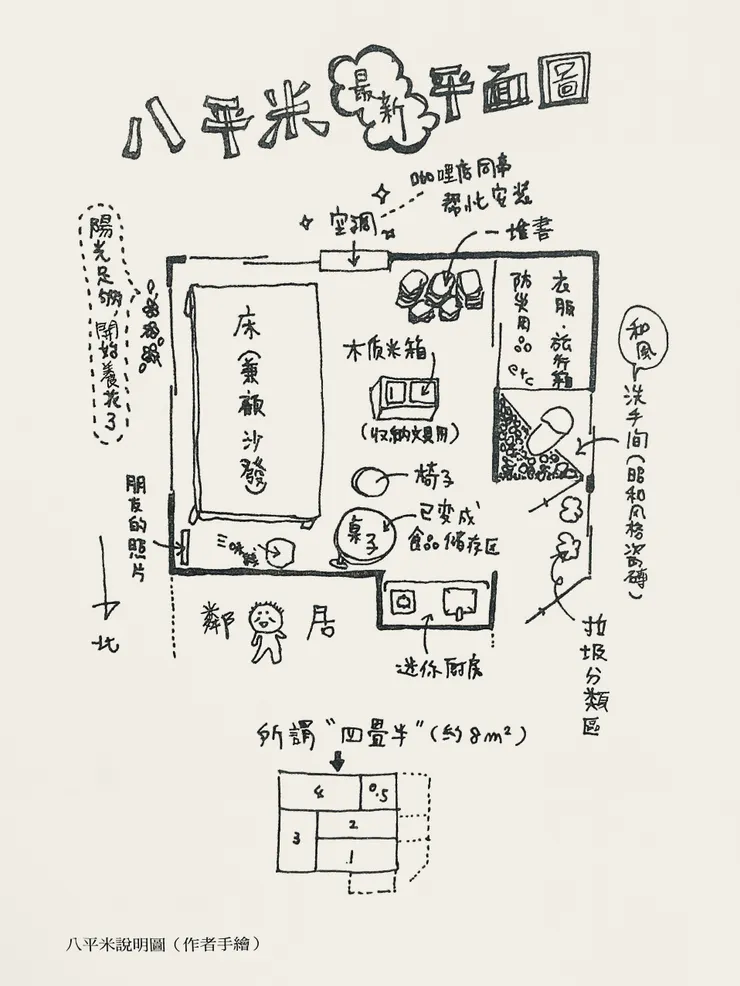 八平米最新平面圖
咖哩店同事
幫忙安裝
空調
一堆書
陽光足夠，開始養花了
床（兼顧沙發）
木質米箱
（收納文具用）
衣服・旅行箱
防災用品
etc
和風
洗手間（昭和風格瓷磚）
椅子
桌子
已變成
食品儲存區
三味線
朋友的照片
北
鄰居
迷你厨房
垃圾分類區
所謂“四疊半”（約8m²）
4
0.5
3
2
1
八平米說明圖（作者手繪）